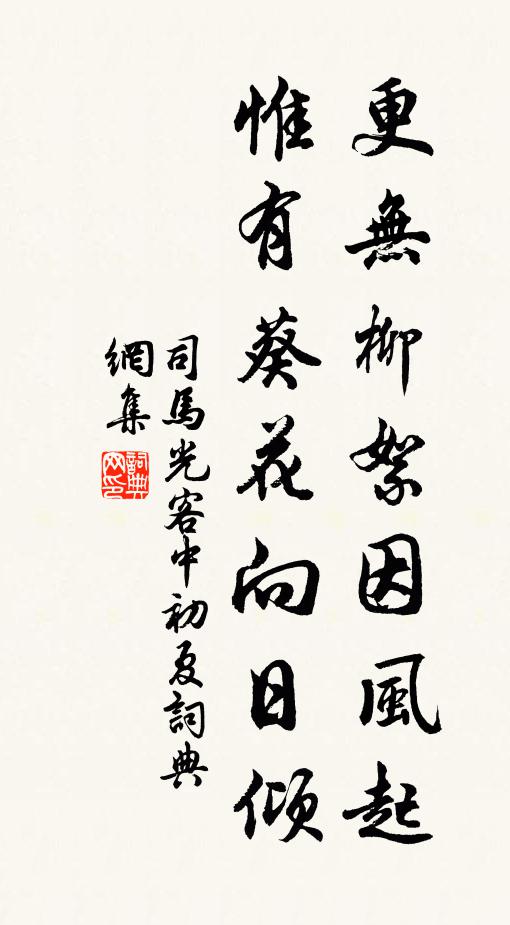 更無柳絮因風起
惟有葵花向日傾
司馬光客中初夏詞典
網集
詞典網印